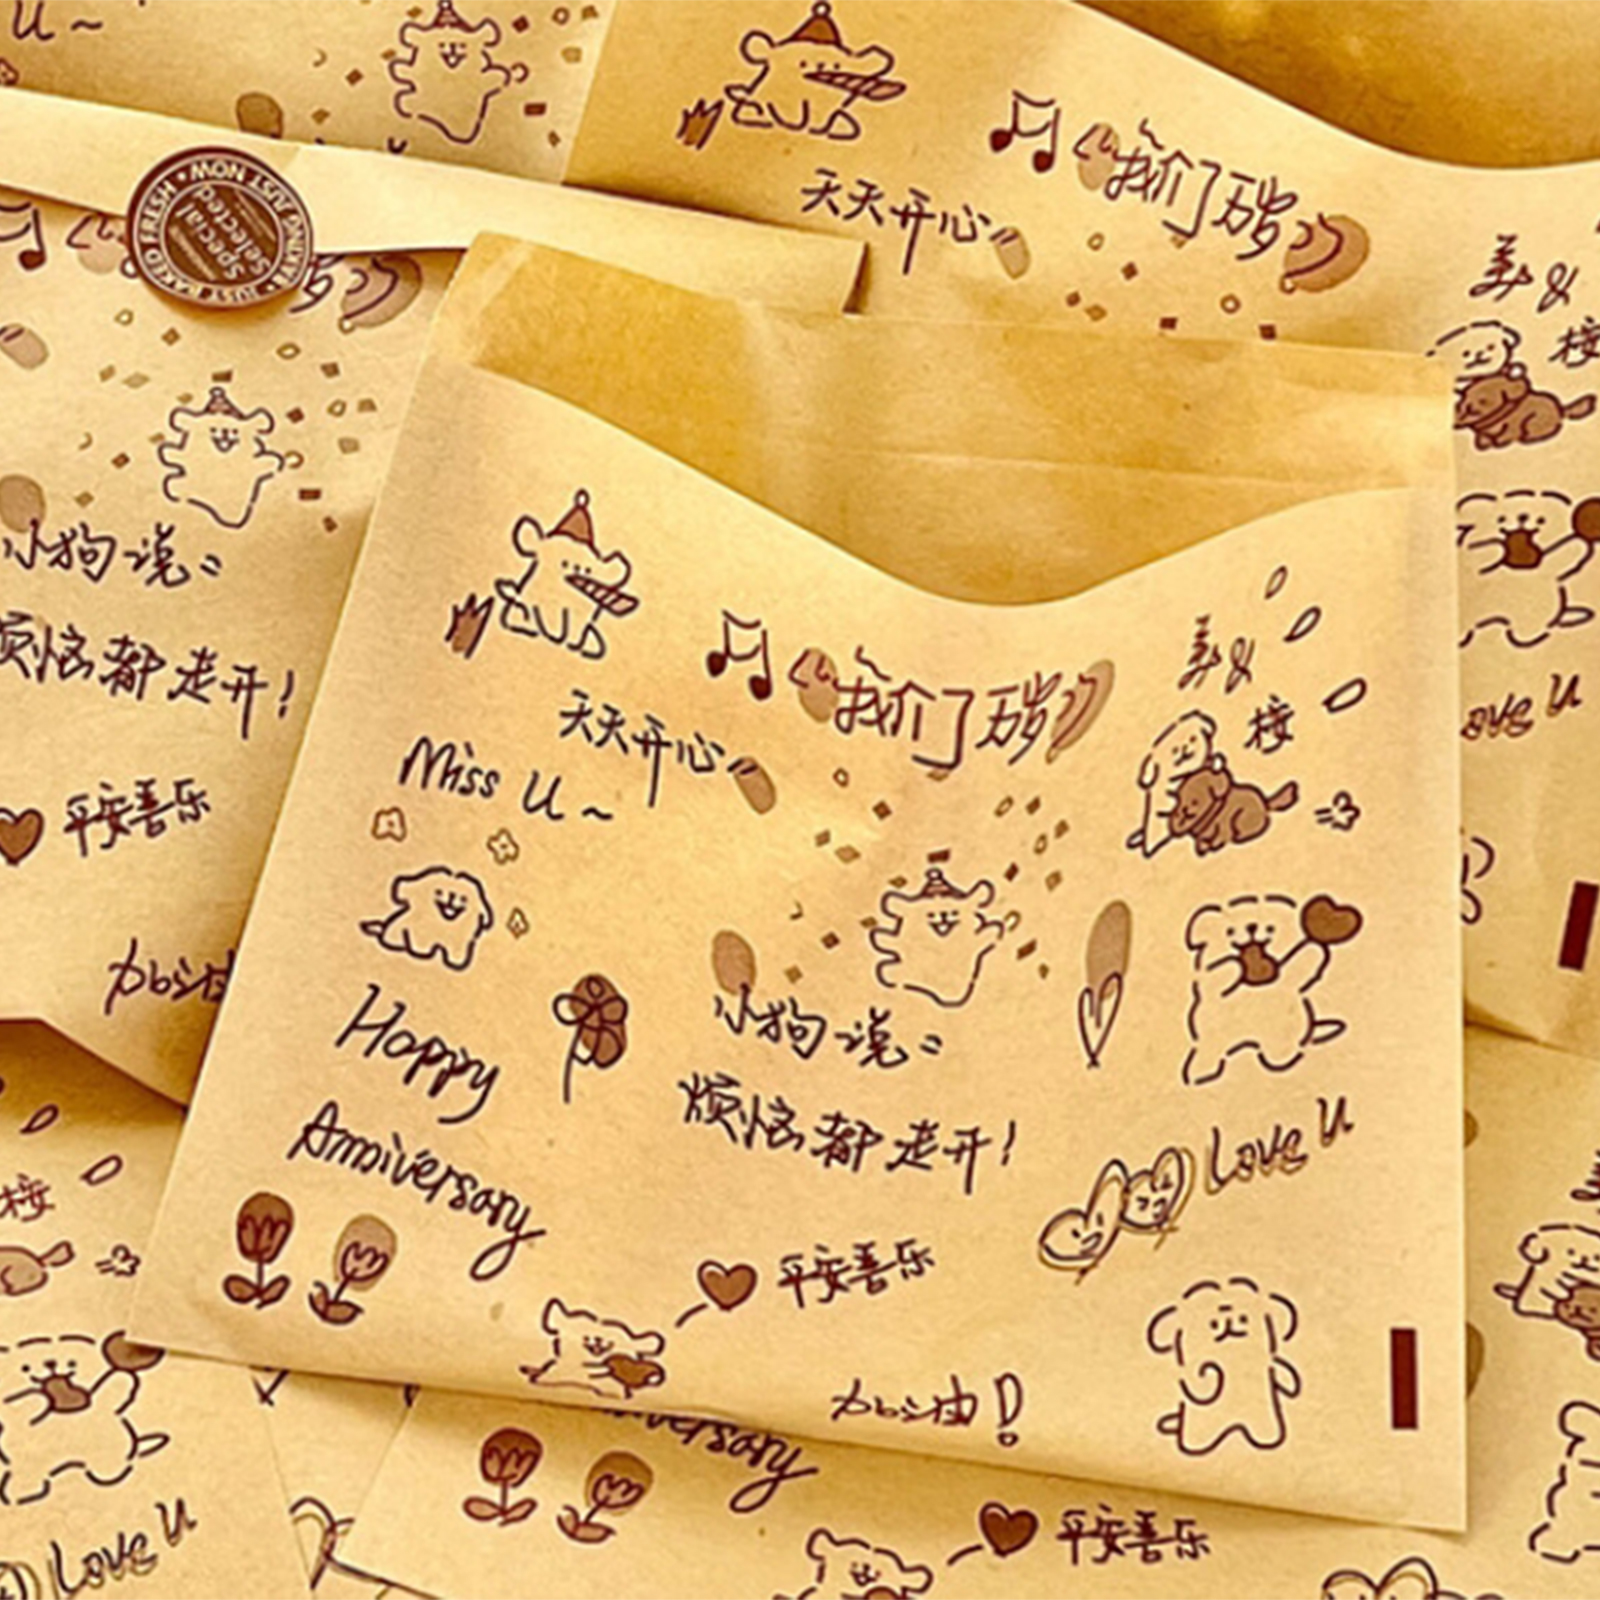 U~
天天开心
我们万岁
SPECIAL
Selected
JUST BAKED FRESH • TAKING JUST NOW •
岁
接
小狗说:
烦恼都走开!
平安喜乐
加油
Love U
天天开心
我们万岁
接
Miss U~
Happy
Anniversary
小狗说:
烦恼都走开!
Love U
平安喜乐
加油!
接
Love U
Anniversary
平安喜乐